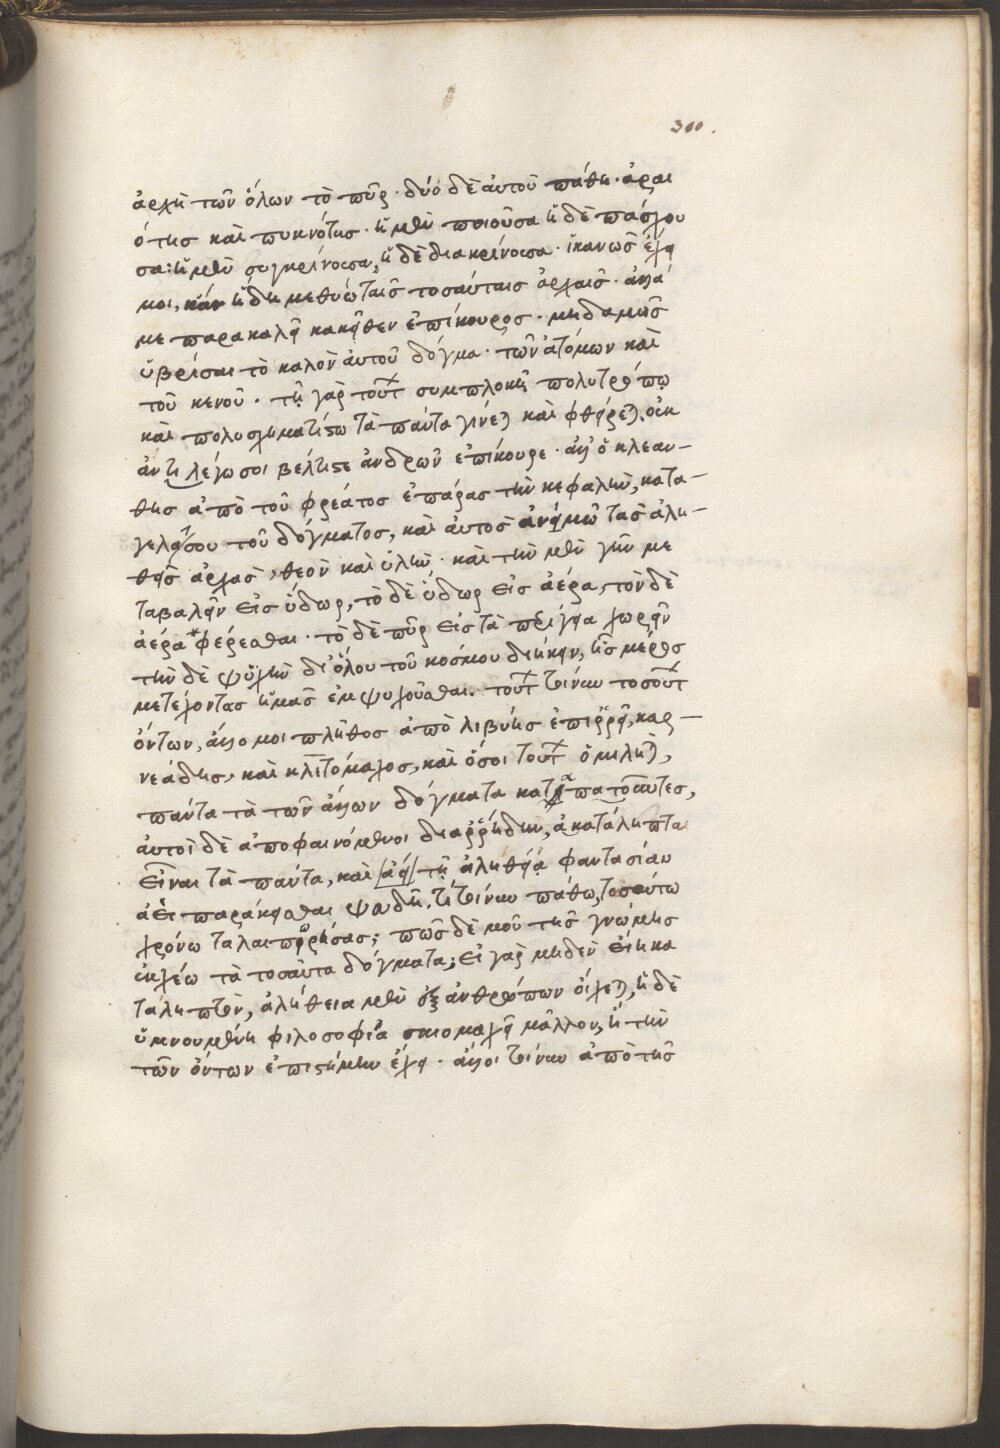 300.
ἀρχὴ τῶν ὅλων τὸ πῦρ· δύο δὲ αὐτοῦ πάθη· ἀραι
ότης καὶ πυκνότης· ἡ μὲν ποιοῦσα ἡ δὲ πάσχου
σα: ἡ μὲν συγκρίνουσα, ἡ δὲ διακρίνουσα· ἱκανῶς ἔχει
μοι, κἂν ἤδη μεθύω ταῖς τοσαύταις ἀρχαῖς· ἀλλά
με παρακαλεῖ κἀκεῖθεν ἐπίκουρος· μηδαμῶς
ὑβρίσαι τὸ καλὸν αὐτοῦ δόγμα· τῶν ἀτόμων καὶ
τοῦ κενοῦ· τῇ γὰρ τούτων συμπλοκῇ πολυτρόπῳ
καὶ πολυσχηματίστω τὰ πάντα γίνεται καὶ φθείρεται. οὐκ
ἀντιλέγω σοι βέλτιστε ἀνδρῶν ἐπίκουρε· ἀλλ' ὁ κλεαν–
θης ἀπὸ τοῦ φρέατος ἐπάρας τὴν κεφαλὴν, κατα–
γελᾷ σου τοῦ δόγματος, καὶ αὐτὸς ἀνιμᾷ τὰς ἀλη–
θεῖς ἀρχὰς, θεὸν καὶ ὕλην· καὶ τὴν μὲν γῆν με
ταβαλεῖν εἰς ὕδωρ, τὸ δὲ ὕδωρ εἰς ἀέρα, τὸν δὲ
ἀέρα * φέρεσθαι· τὸ δὲ πῦρ εἰς τὰ περίγεια χωρεῖν
τὴν δὲ ψυχὴν δι' ὅλου τοῦ κόσμου διήκειν, ἧς μέρος
μετέχοντας ἡμᾶς ἐμψυχοῦσθαι. τούτων τοίνυν τοσούτων
ὄντων, ἄλλο μοι πλῆθος ἀπὸ λιβύης ἐπιρρεῖ, καρ–
νεάδης, καὶ κλιτόμαχος, καὶ ὅσοι τούτων ὁμιληταὶ,
πάντα τὰ τῶν ἄλλων δόγματα καταπατοῦντες,
αὐτοὶ δὲ ἀποφαινόμενοι διαρρήδην, ἀκατάληπτα
εἶναι τὰ πάντα, καὶ |ἀεὶ| τῇ ἀληθείᾳ φαντασίαν
ἀεὶ παρακεῖσθαι ψευδῆ. τί τοίνυν πάθω, τοσούτω
χρόνω ταλαιπωρήσας; πῶς δὲ μοῦ τῆς γνώμης
ἐκχέω τὰ τοσαῦτα δόγματα; εἰ γὰρ μηδὲν εἴη κα
ταληπτὸν, ἀλήθεια μὲν ἐξ ἀνθρώπων οἴχεται, ἡ δὲ
ὑμνουμένη φιλοσοφία σκιομαχεῖ μᾶλλον, ἢ τὴν
τῶν ὄντων ἐπιστήμην ἔχει· ἄλλοι τοίνυν ἀπὸ τῆς